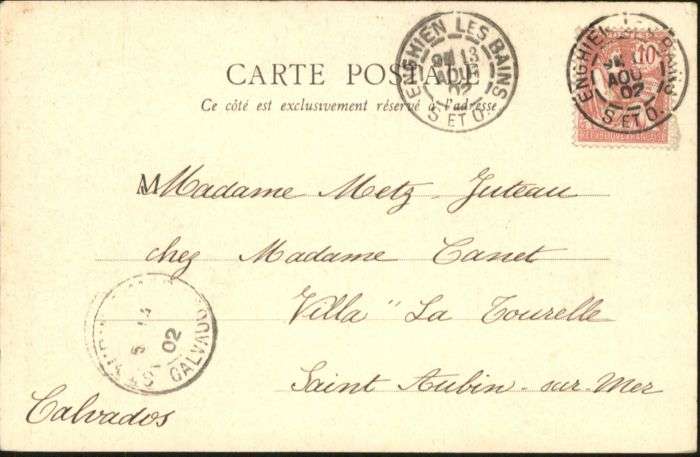 CARTE POSTALE
Ce côté est exclusivement réservé à l'adresse
ENGHIEN LES BAINS
13
AOU
02
S. ET O.
ENGHIEN LES BAINS
AOU
02
S. ET O.
10
RÉPUBLIQUE FRANÇAISE
M Madame Metz-Juteau
chez Madame Canet
Villa "La Tourelle
Saint Aubin-sur-Mer
Calvados
02
CALVADOS